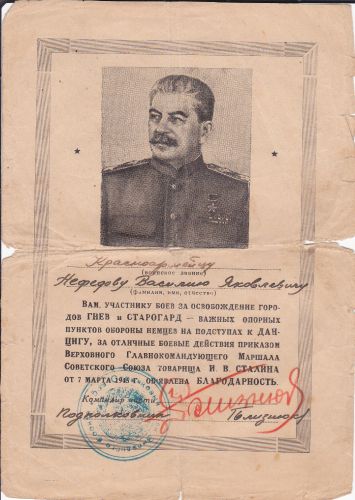 Красноармейцу
(воинское звание)
Нефедову Василию Яковлевичу
(фамилия, имя, отчество)
Вам, участнику боев за освобождение горо-
дов ГНЕВ и СТАРОГАРД — важных опорных
пунктов обороны немцев на подступах к ДАН-
ЦИГУ, за отличные боевые действия приказом
Верховного Главнокомандующего Маршала
Советского Союза товарища И. В. СТАЛИНА
от 7 марта 1945 г. объявлена БЛАГОДАРНОСТЬ.
Командир части
Подполковник